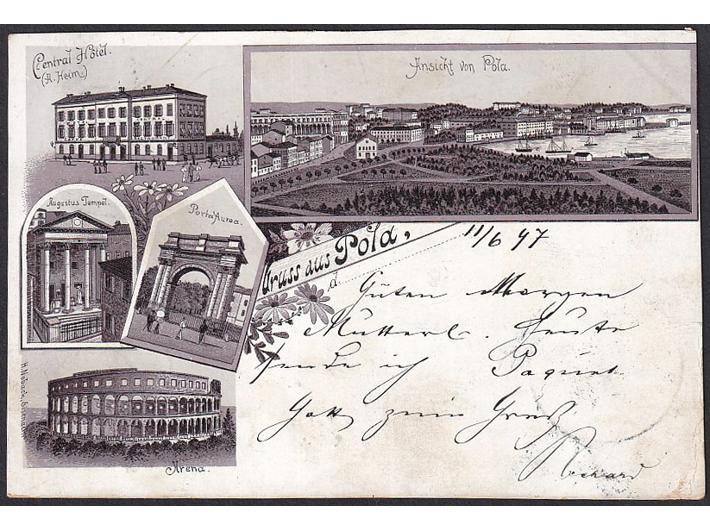 Central Hôtel.
(A. Heim.)
Ansicht von Pola.
Augustus Tempel.
Porta Aurea.
Gruss aus Pola,
d. 11/6 97
Guten Morgen
Mutterl. Heute
sende ich Paquet.
Gott zum Gruß
Arena.